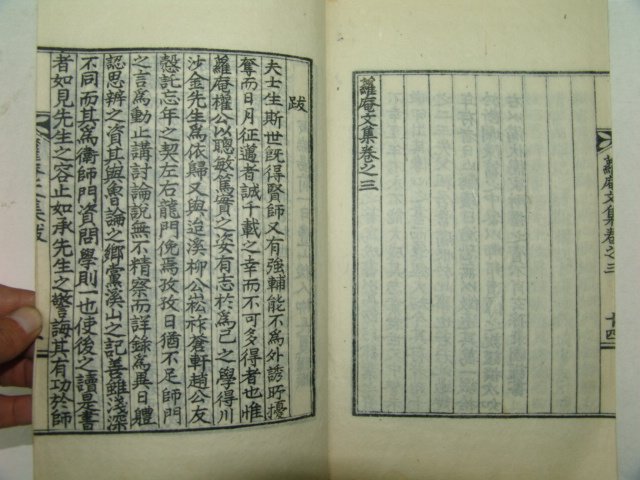 蘿庵文集卷之三
十四
蘿庵文集卷之三
跋
夫士生斯世旣得賢師又有強輔能不爲外誘所擾
奪而日月征邁者誠千載之幸而不可多得者也惟
蘿庵權公以聰敏篤實之姿有志於爲己之學得川
沙金先生爲依歸又與迃溪柳公崧祚蒼軒趙公友
慤託忘年之契左右龍門俛焉孜孜日猶不足師門
之言爲動止講討論說無不精察而詳錄爲異日軆
認思辨之資其與魯論之鄉黨溪山之記善雖淺深
不同而其爲衛師門資問學則一也使後之讀是書
者如見先生之容止如承先生之警誨其有功於師